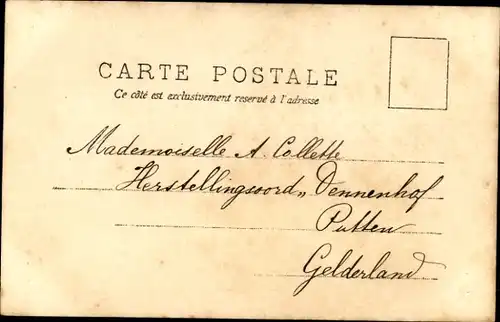 CARTE POSTALE
Ce côté est exclusivement reservé à l'adresse
Mademoiselle A. Collette
Herstellingsoord „ Dennenhof
Putten
Gelderland